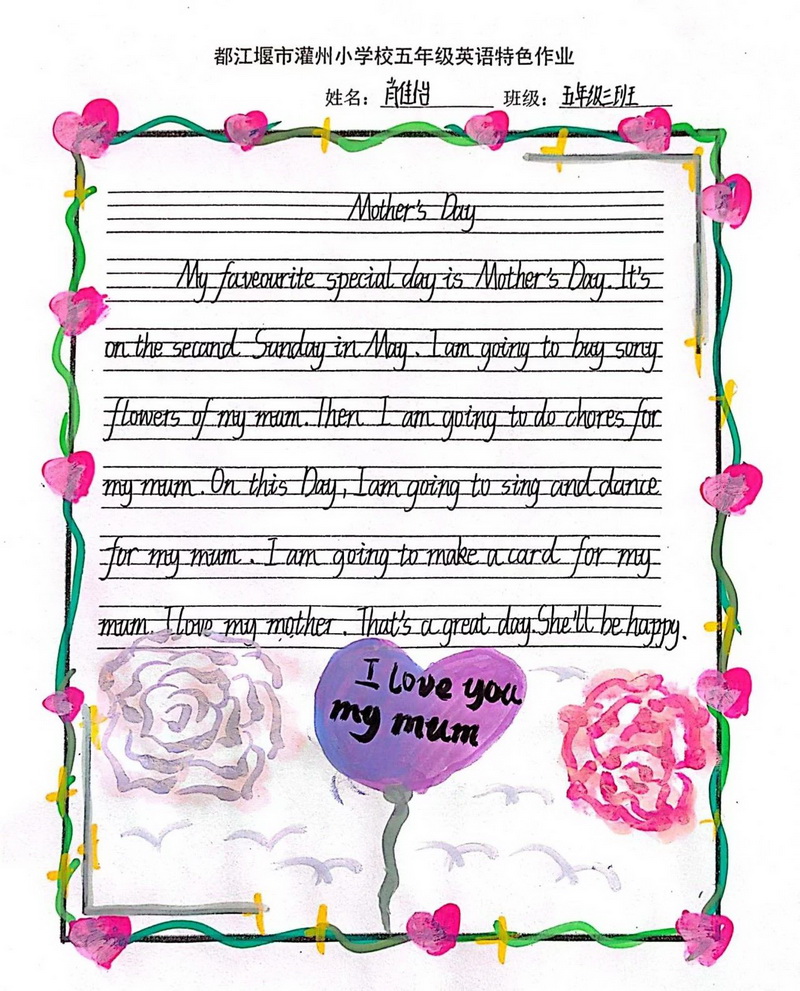 都江堰市灌州小学校五年级英语特色作业
姓名：肖佳怡 班级：五年级三班
Mother's Day
My faveourite special day is Mother's Day. It's
on the second Sunday in May. I am going to buy sony
flowers of my mum. Then I am going to do chores for
my mum. On this Day, I am going to sing and dance
for my mum. I am going to make a card for my
mum. I love my mother. That's a great day. She'll be happy.
I love you
my mum